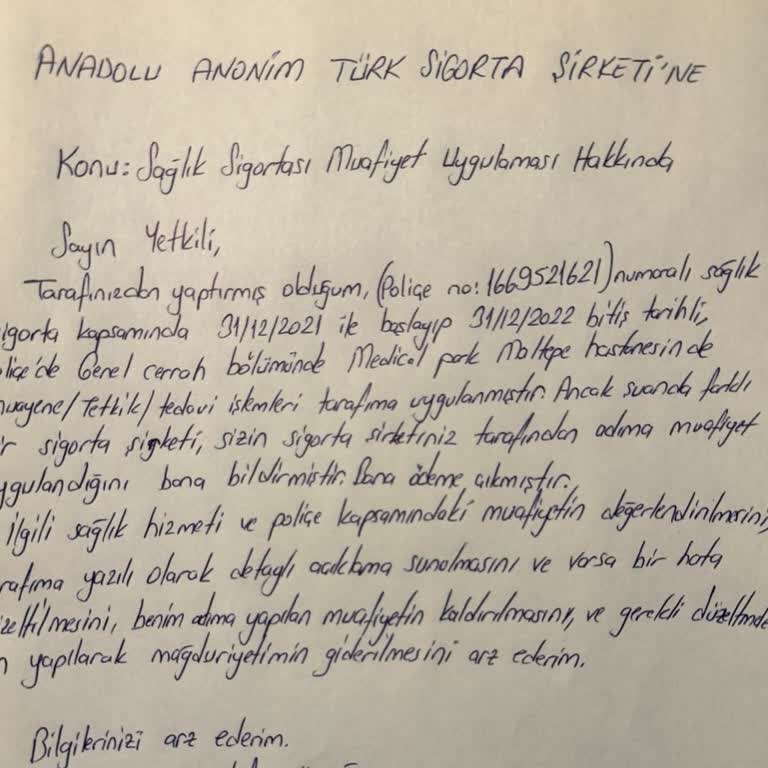 ANADOLU ANONİM TÜRK SİGORTA ŞİRKETİ'NE
Konu: Sağlık Sigortası Muafiyet Uygulaması Hakkında
Sayın Yetkili,
Tarafınızdan yaptırmış olduğum, (Poliçe no: 1669521621) numaralı sağlık
igorta kapsamında 31/12/2021 ile başlayıp 31/12/2022 bitiş tarihli,
liçe'de Genel cerrah bölümünde Medical park Maltepe hastanesinde
uayene/Tetkik/tedavi işkmleri tarafıma uygulanmıştır. Ancak şuanda farklı
r sigorta şirketi, sizin sigorta şirketiniz tarafından adıma muafiyet
ygulandığını bana bildirmiştir. Bana ödeme çıkmıştır.
İlgili sağlık hizmeti ve poliçe kapsamındaki muafiyetin değerlendirilmesini,
rafıma yazılı olarak detaylı açıklama sunulmasını ve varsa bir hata
zeltilmesini, benim adıma yapılan muafiyetin kaldırılmasını, ve gerekli düzeltme
n yapılarak mağduriyetimin giderilmesini arz ederim.
Bilgilerinizi arz ederim.